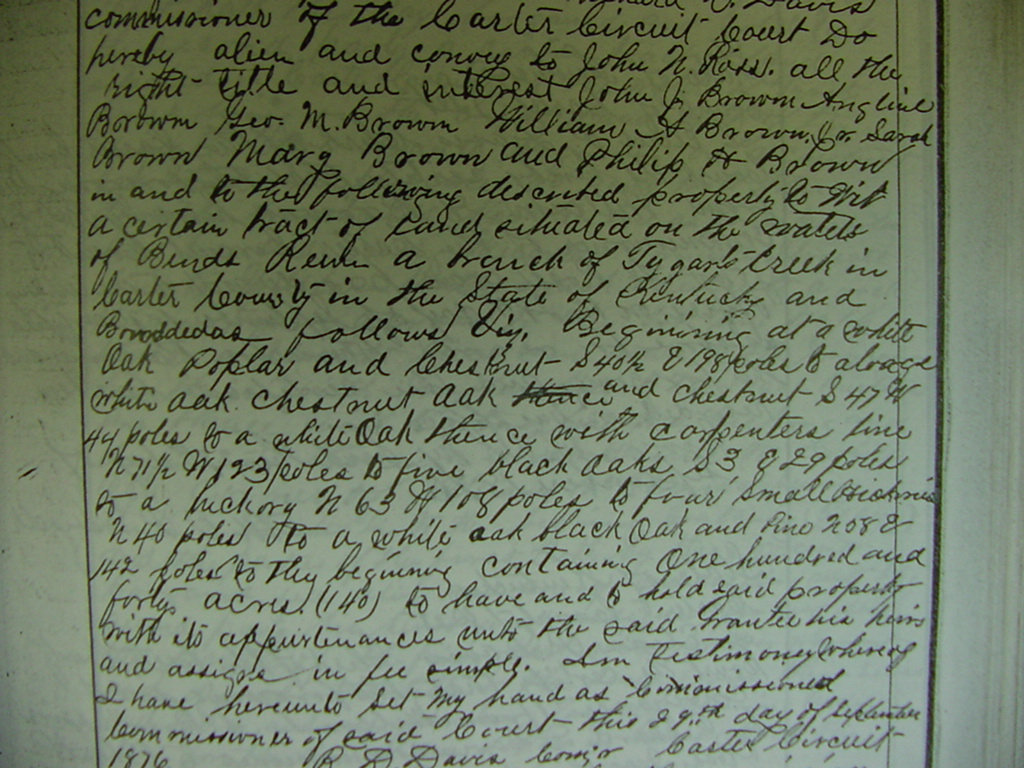 Davis
commissioner of the Carter Circuit Court Do
hereby alien and convey to John N. Ross. all the
right title and interest John J Brown Angline
Borown Geo. M. Brown William A Brown, Jr Sarah
Brown Mary Brown and Philip H Brown
in and to the following described property to Wit
a certain tract of Land situated on the waters
of Bends a branch of Tygarts Creek in
Carter County in the State of Kentucky and
follows Viz. Beginining at a white
Oak Poplar and Chestnut S 40½ E 198 poles to a
white oak chestnut oak and chestnut S 47 W
44 poles to a white Oak thence with carpenters line
N 71½ W 123 poles to five black oaks S 3 E 29 poles
to a hickory N 63 W 108 poles to four small Hickories
N 40 poles to a white oak black Oak and Pine N 08 E
142 poles to the begining containing One hundred and
forty acres. (140) to have and to hold said property
with its appurtenances unto the said Grantee his heirs
and assigns in fee simple. In testimony whereof
I have hereunto set my hand as Commissioned
Commissioner of said Court this 29th day of September
1876 R D Davis Comr Carter Circuit